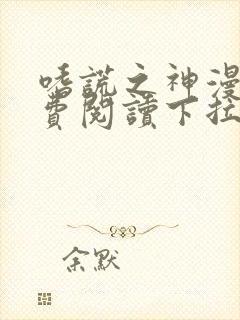 嗜謊之神漫
費閱讀下拉
余默